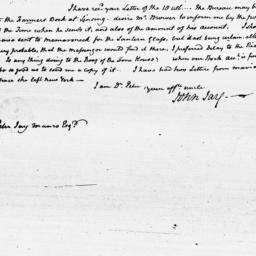 I have rec.d your Letter of the 10 ult.— The Bureau may be
to the Farmers Dock at Sing Sing. desire Mr. Brower to inform me by the
the Time when he sends it, and also of the amount of his account.
was sent to mamaroneck for the Lantern & Cape, but it not being certain,
very probable, that the messenger would find it there, I preferred Delay to the
Is any thing doing to the Roof of the Jona House? when our Bank acc.t is
be so good as to send me a copy of it.. I have had two Letters from maria
since she left new York —
I am D.r Peter your aff.te uncle
John Jay —
Peter Jay Munro Esq.r